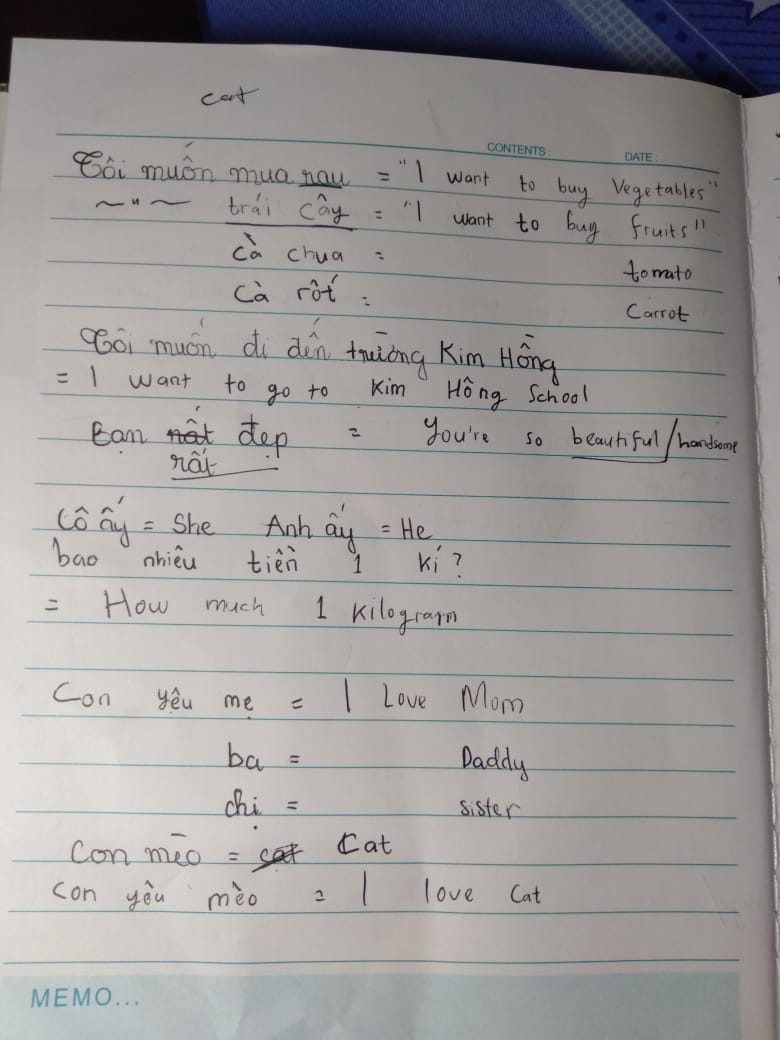 cat
CONTENTS: DATE:
Tôi muốn mua rau = "I want to buy Vegetables"
~ " ~ trái cây = "I want to buy fruits"
cà chua = tomato
cà rốt = Carrot
Tôi muốn đi đến trường Kim Hồng
= I want to go to Kim Hồng School
Bạn rất đẹp = You're so beautiful/handsome
rất
Cô ấy = She Anh ấy = He
bao nhiêu tiền 1 kí?
= How much 1 kilogram
Con yêu mẹ = I Love Mom
ba = Daddy
chị = sister
Con mèo = cat Cat
Con yêu mèo = I love Cat
MEMO...